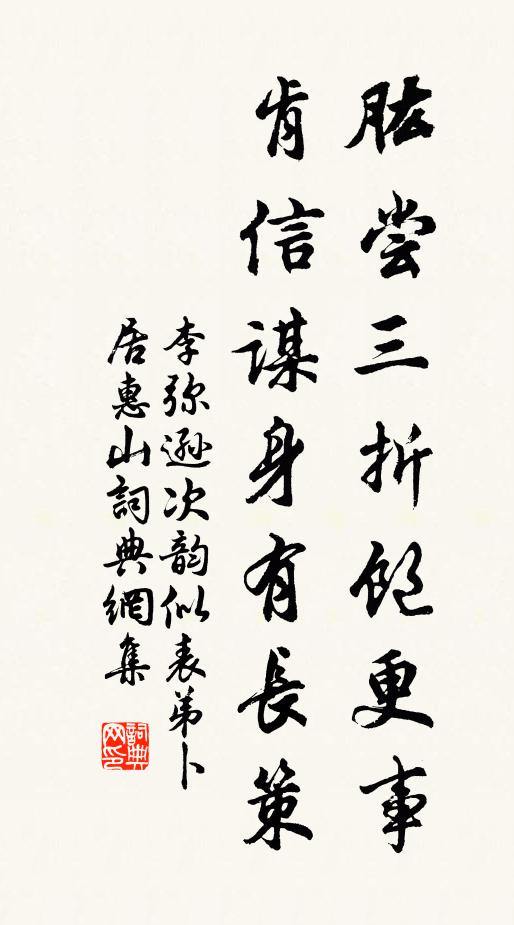 肱尝三折飽更事
肯信謀身有長策
李弥遜次韵似表弟卜
居惠山詞典網集
詞典网印